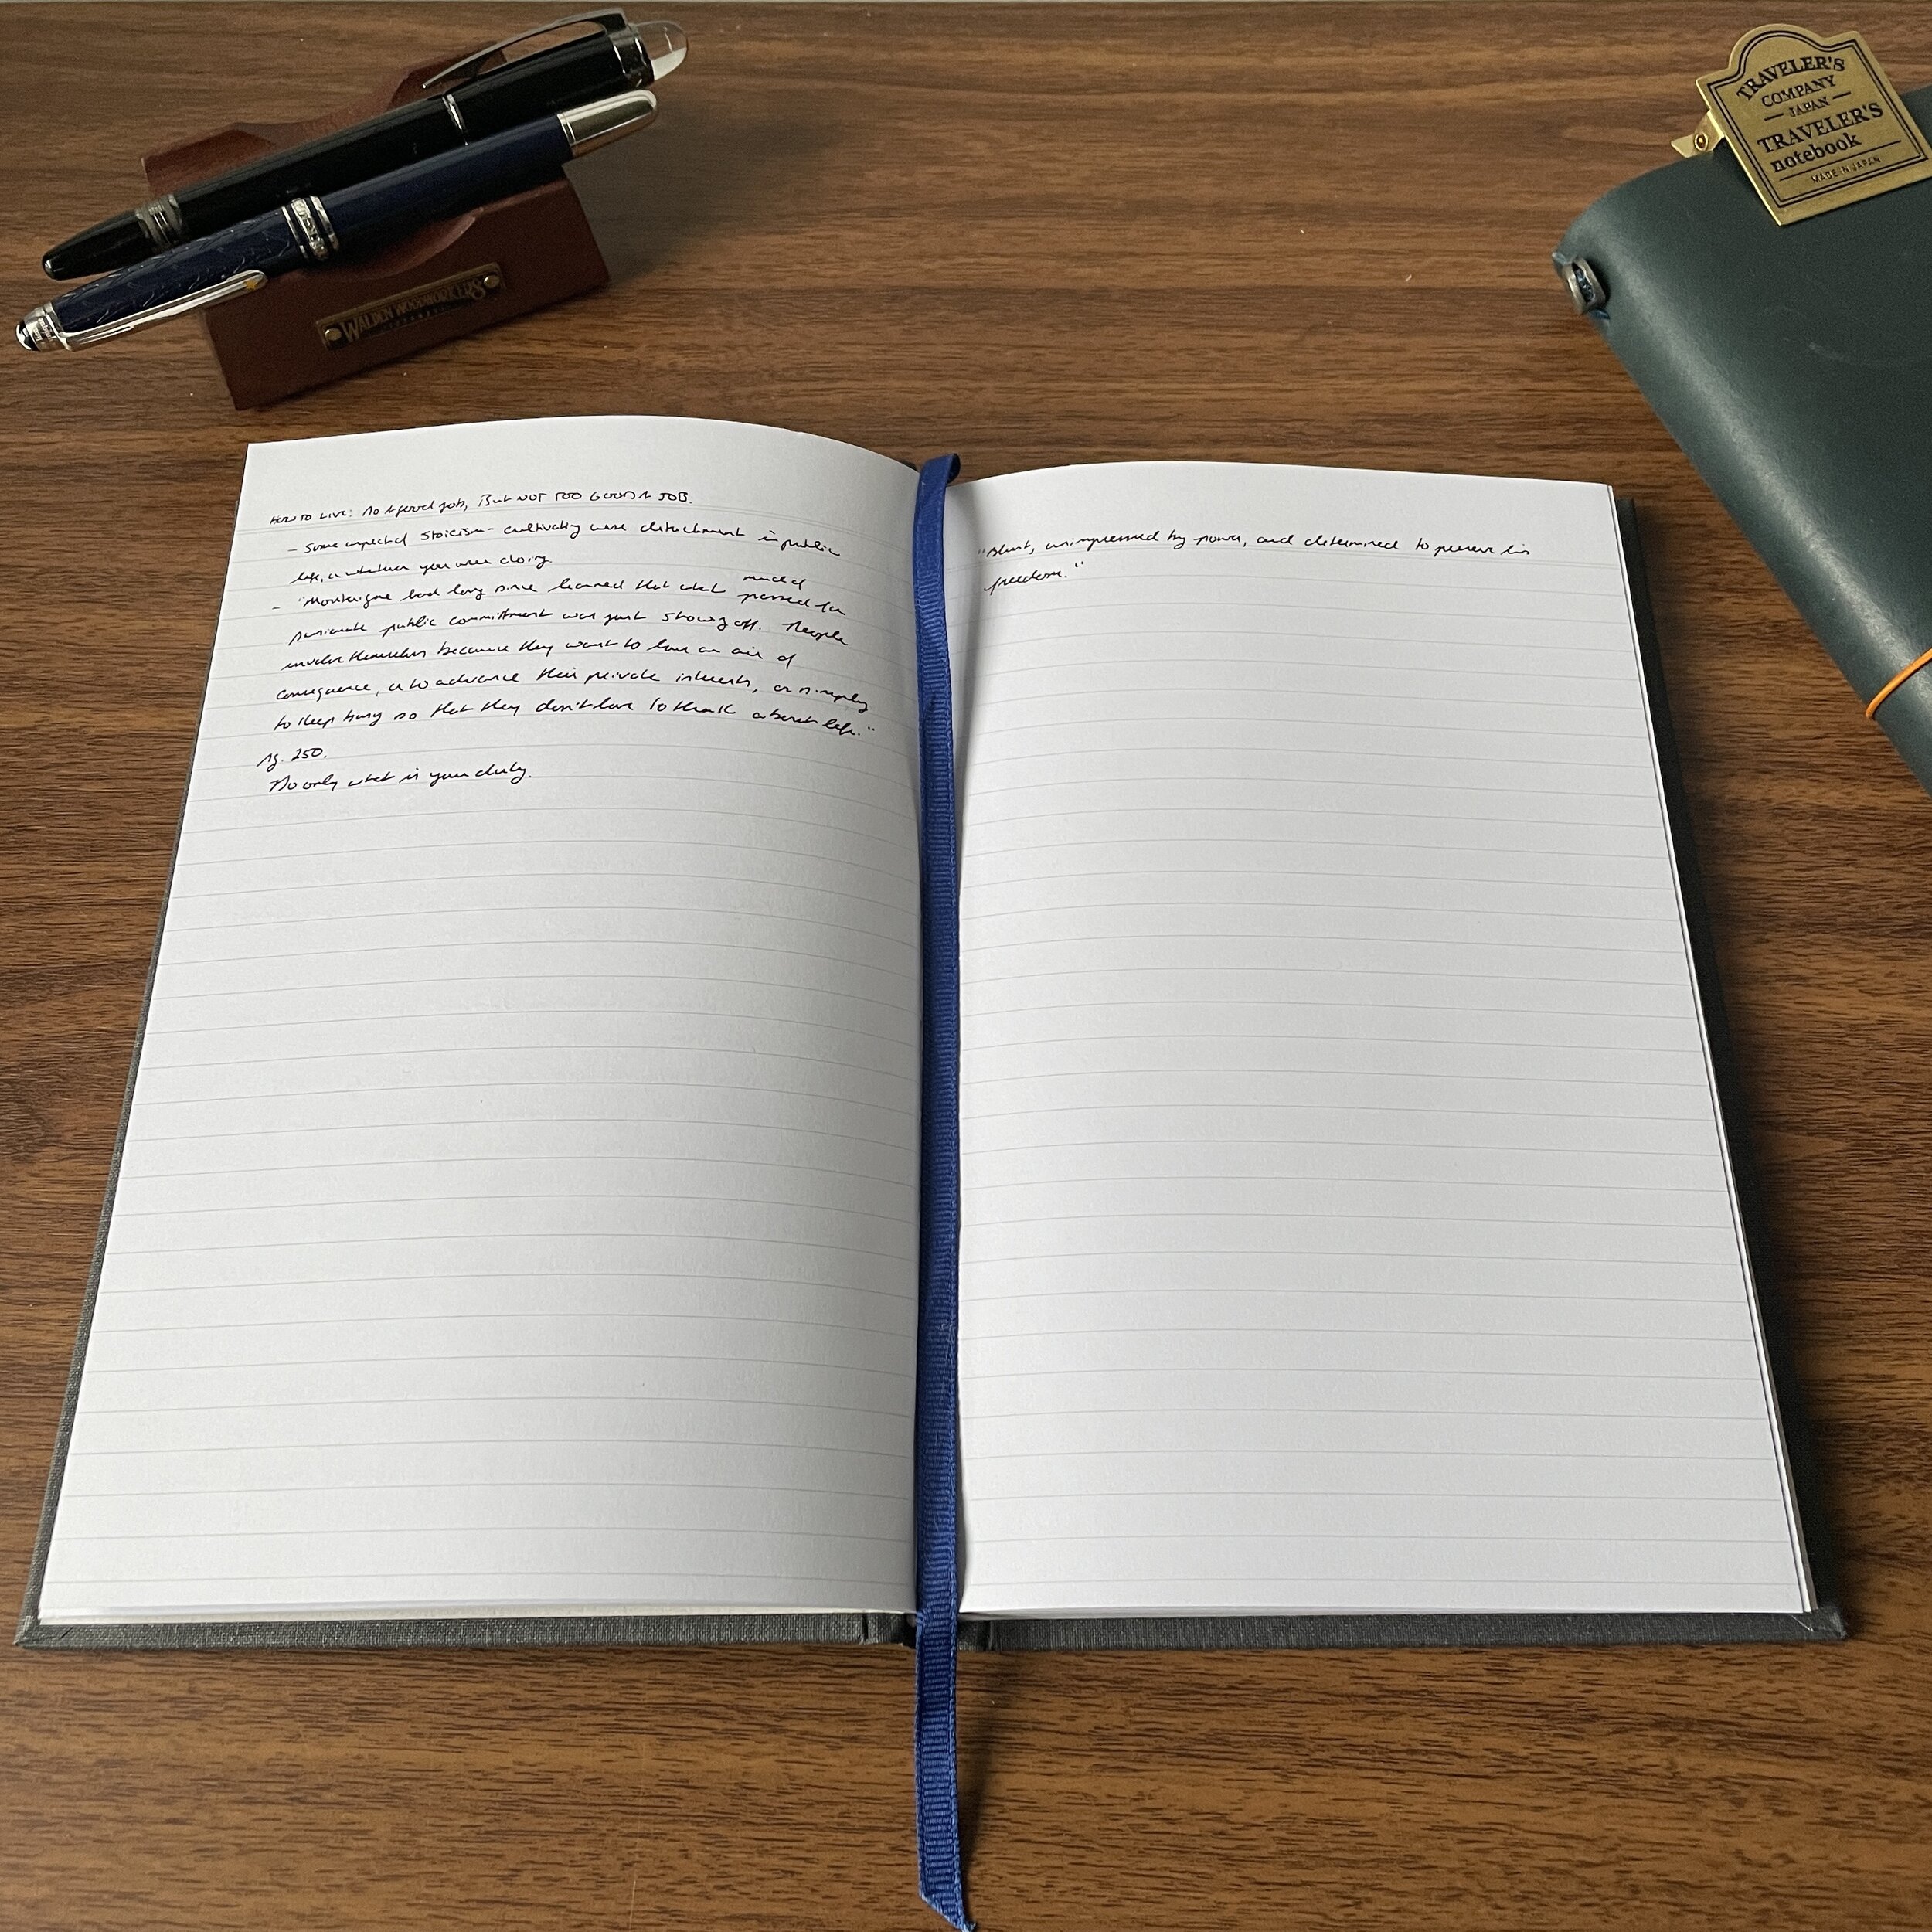 TRAVELER'S
COMPANY
JAPAN
TRAVELER'S
notebook
MADE IN JAPAN
WALDEN WOODWORKERS
HOW TO LIVE: Do A good job, But NOT TOO GOOD A JOB.
- Some aspect of Stoicism - cultivating some detachment in public
life, or whatever you were doing.
- "Montaigne had long since learned that what much of passed for
passionate public commitment was just showing off. People
involve themselves because they want to have an air of
consequence, or to advance their private interests, or simply
to keep busy so that they don't have to think about life."
Pg. 250.
Do only what is your duty.
"Blunt, unimpressed by power, and determined to preserve his
freedom."